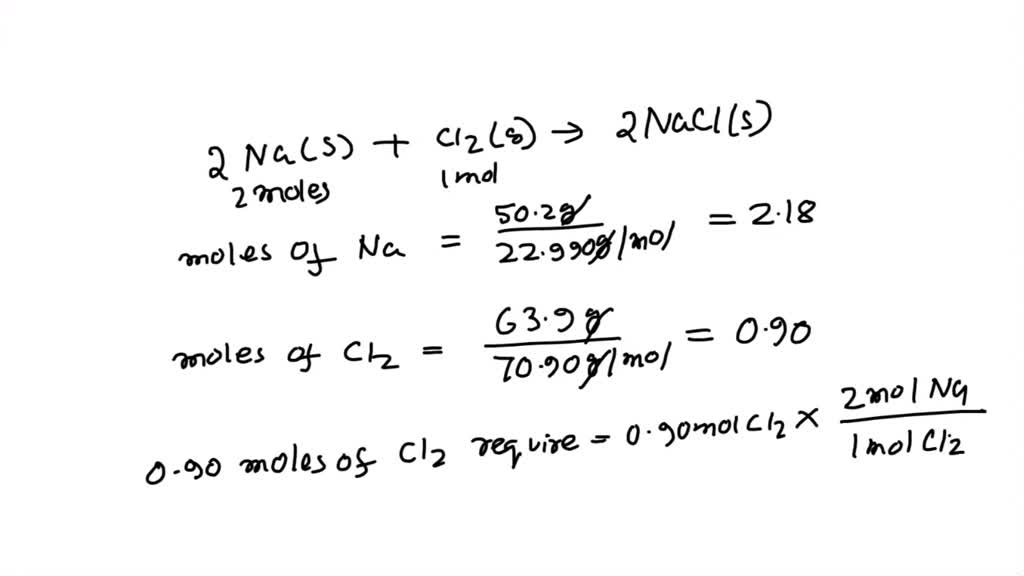 2 Na(s) + Cl2(g) → 2NaCl(s)
2 moles 1 mol
moles of Na = 50.2g / 22.990g/mol = 2.18
moles of Cl2 = 63.9g / 70.90g/mol = 0.90
0.90 moles of Cl2 require = 0.90mol Cl2 × 2mol Na / 1mol Cl2